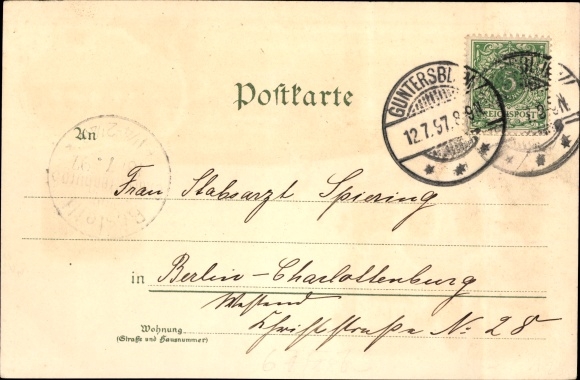 Postkarte
GUNTERSBL
12.7.97.8-9N
5
REICHSPOST
An
Frau Stabsarzt Spiering
in Berlin-Charlottenburg
Westend
Wohnung
(Straße und Hausnummer)
No 28